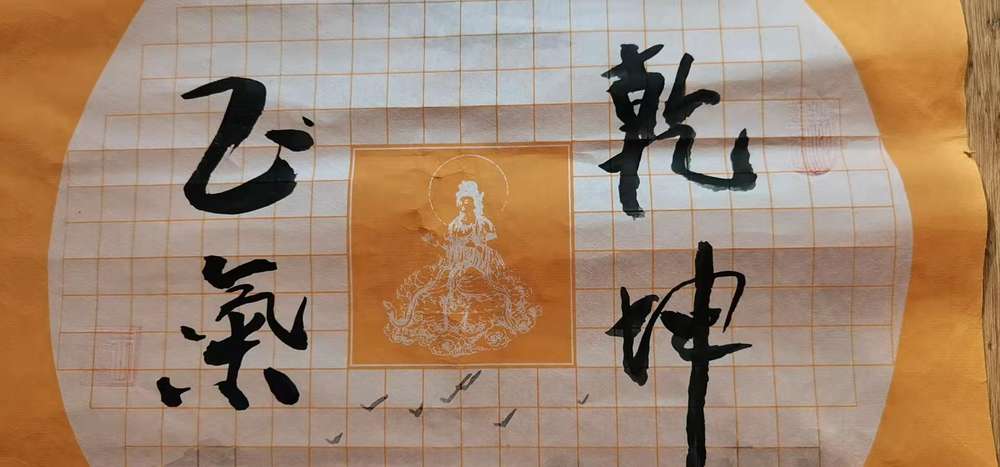 乾坤
正氣